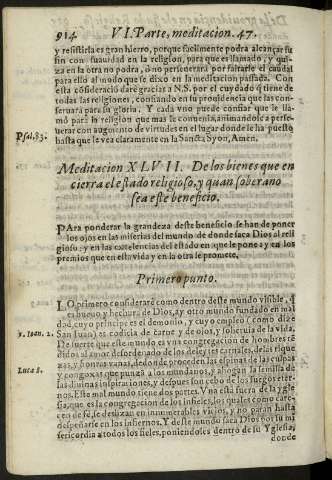 914 VI. Parte, meditacion. 47.
y resistirla es gran hierro, porque facilmente podra alcançar su
fin con suauidad en la religion, para que es llamado, y qui-
za en la otra no podra, ò no perseuerarà por faltarle el caudal
para ello al modo que se dixo en la meditacion passada. Con
esta cõsideraciõ darè gracias a N. S. por el cuydado q̃ tiene de
todas las religiones, confiando en su prouidencia que las con-
seruarà para su gloria. Y cada vno puede confiar que le lla-
mò para la religion que mas le conuenia, animandose a perse-
uerar con augmento de virtudes en el lugar donde le ha puesto
Psal. 83. hasta que le vea claramente en la Sancta Syon, Amen.
Meditacion XLVII. De los bienes que en
cierra el estado religioso, y quan soberano
sea este beneficio.
PAra ponderar la grandeza deste beneficio se han de poner
los ojos en las miserias del mundo de donde saca Dios al reli
gioso: y en las excelencias del estado en que le pone: y en los
premios que en esta vida y en la otra se promete.
Primero punto.
LO primero considerarè como dentro deste mundo visible, q̃
es bueno, y hechura de Dios, ay otro mundo fundado en mal
dad, cuyo principe es el demonio, y cuyo empleo (como dize
1. Ioan. 2. San Iuan) es codicia de carne y de ojos, y soberuia de la vida.
De suerte que este mundo es vna congregacion de hombres rẽ
didos al amor desordenado de los deleytes carnales, de las rique
zas, y honras vanas, de donde proceden las espinas de las culpas
Luca 8. y congoxas que punçan a los mundanos, y ahogan la semilla de
las diuinas inspiraciones, y despues son cebo de los fuegos eter-
nos. Este mal mundo tiene dos partes. Vna està fuera de la ygle
sia, que es la congregacion de los infieles, los quales como care-
cen de fè, se deslizan en innumerables vicios, y no paran hasta
despeñarse en los infiernos. Y deste mundo saca Dios por su mi
sericordia a todos los fieles, poniendolos dentro de su Yglesia,
donde